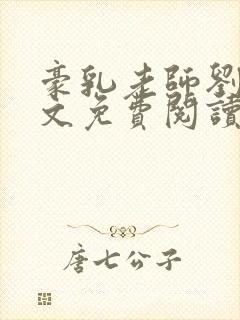 豪乳老師劉
文免費閱讀
唐七公子